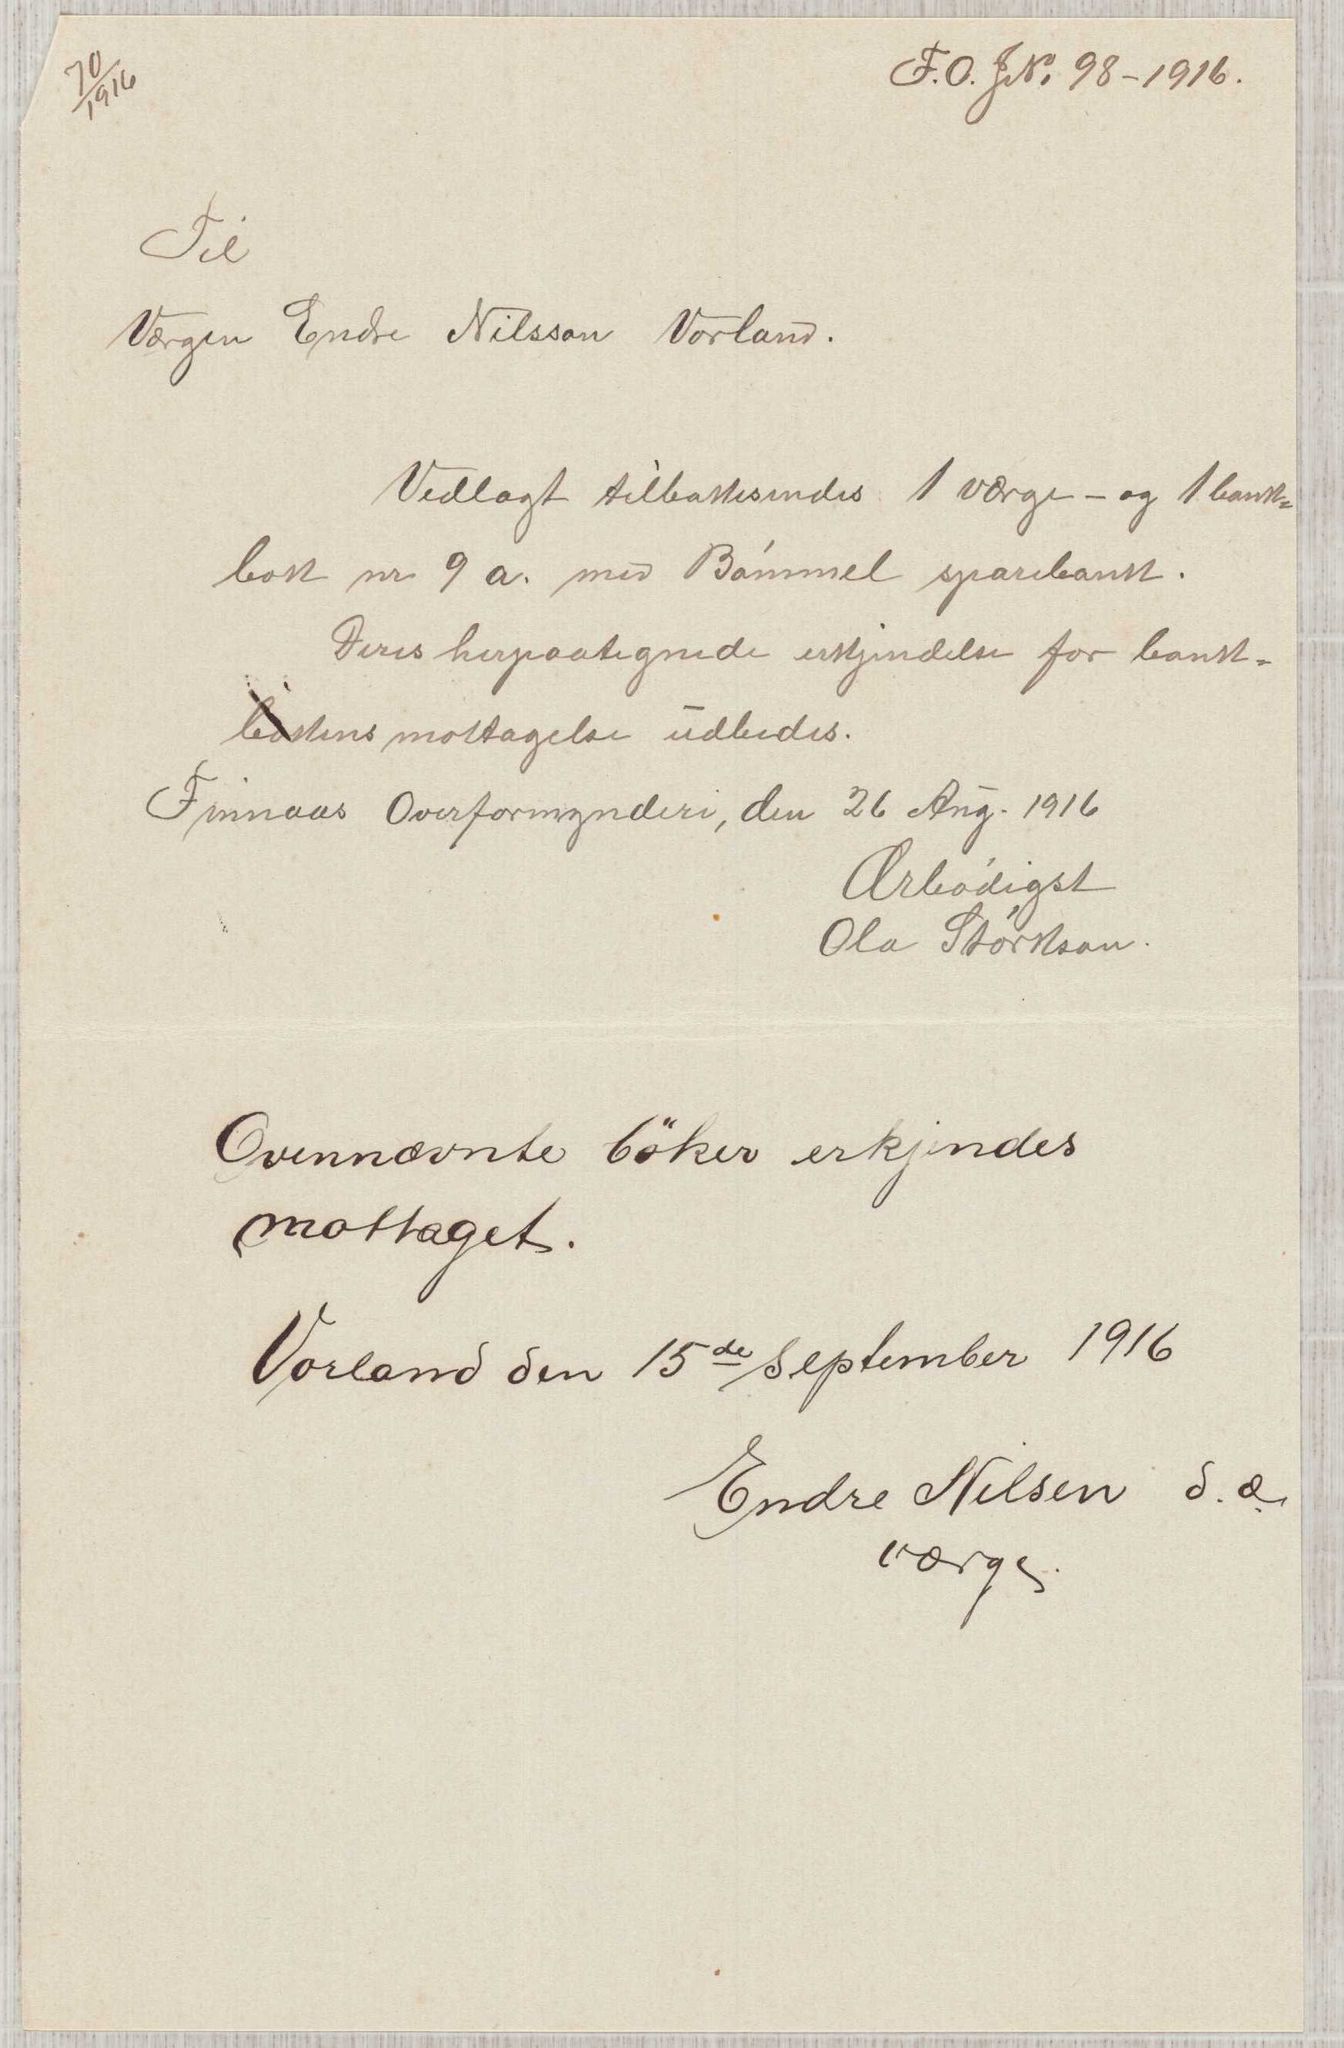 70/1916
F.O. J.N. 98-1916.
Til
Værgen Endre Nilsson Vorland.
Vedlagt tilbakesendes 1 værge- og 1 bank-
bok nr 9 a. med Bömmel sparebank.
Deres herpaategnede erkjendelse for bank-
bokens mottagelse udbedes.
Finnaas Overformynderi, den 26 Aug. 1916
Ærbödigst
Ola Störkson.
Ovennævnte böker erkjendes
mottaget.
Vorland den 15de September 1916
Endre Nilsen d.æ.
værge.